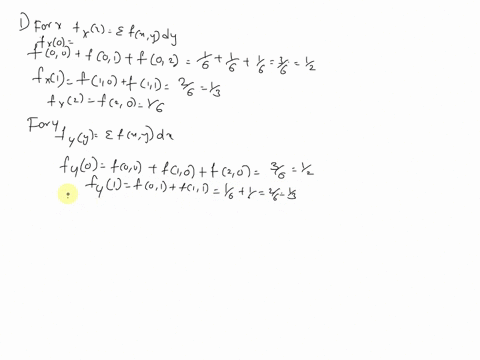 1) For x f_x(x) = Σ f(x,y) dy
f_x(0) =
f(0,0) + f(0,1) + f(0,2) = 1/6 + 1/6 + 1/6 = 3/6 = 1/2
f_x(1) = f(1,0) + f(1,1) = 2/6 = 1/3
f_x(2) = f(2,0) = 1/6
For y
f_y(y) = Σ f(x,y) dx
f_y(0) = f(0,0) + f(1,0) + f(2,0) = 3/6 = 1/2
f_y(1) = f(0,1) + f(1,1) = 1/6 + 1/ = 2/6 = 1/3